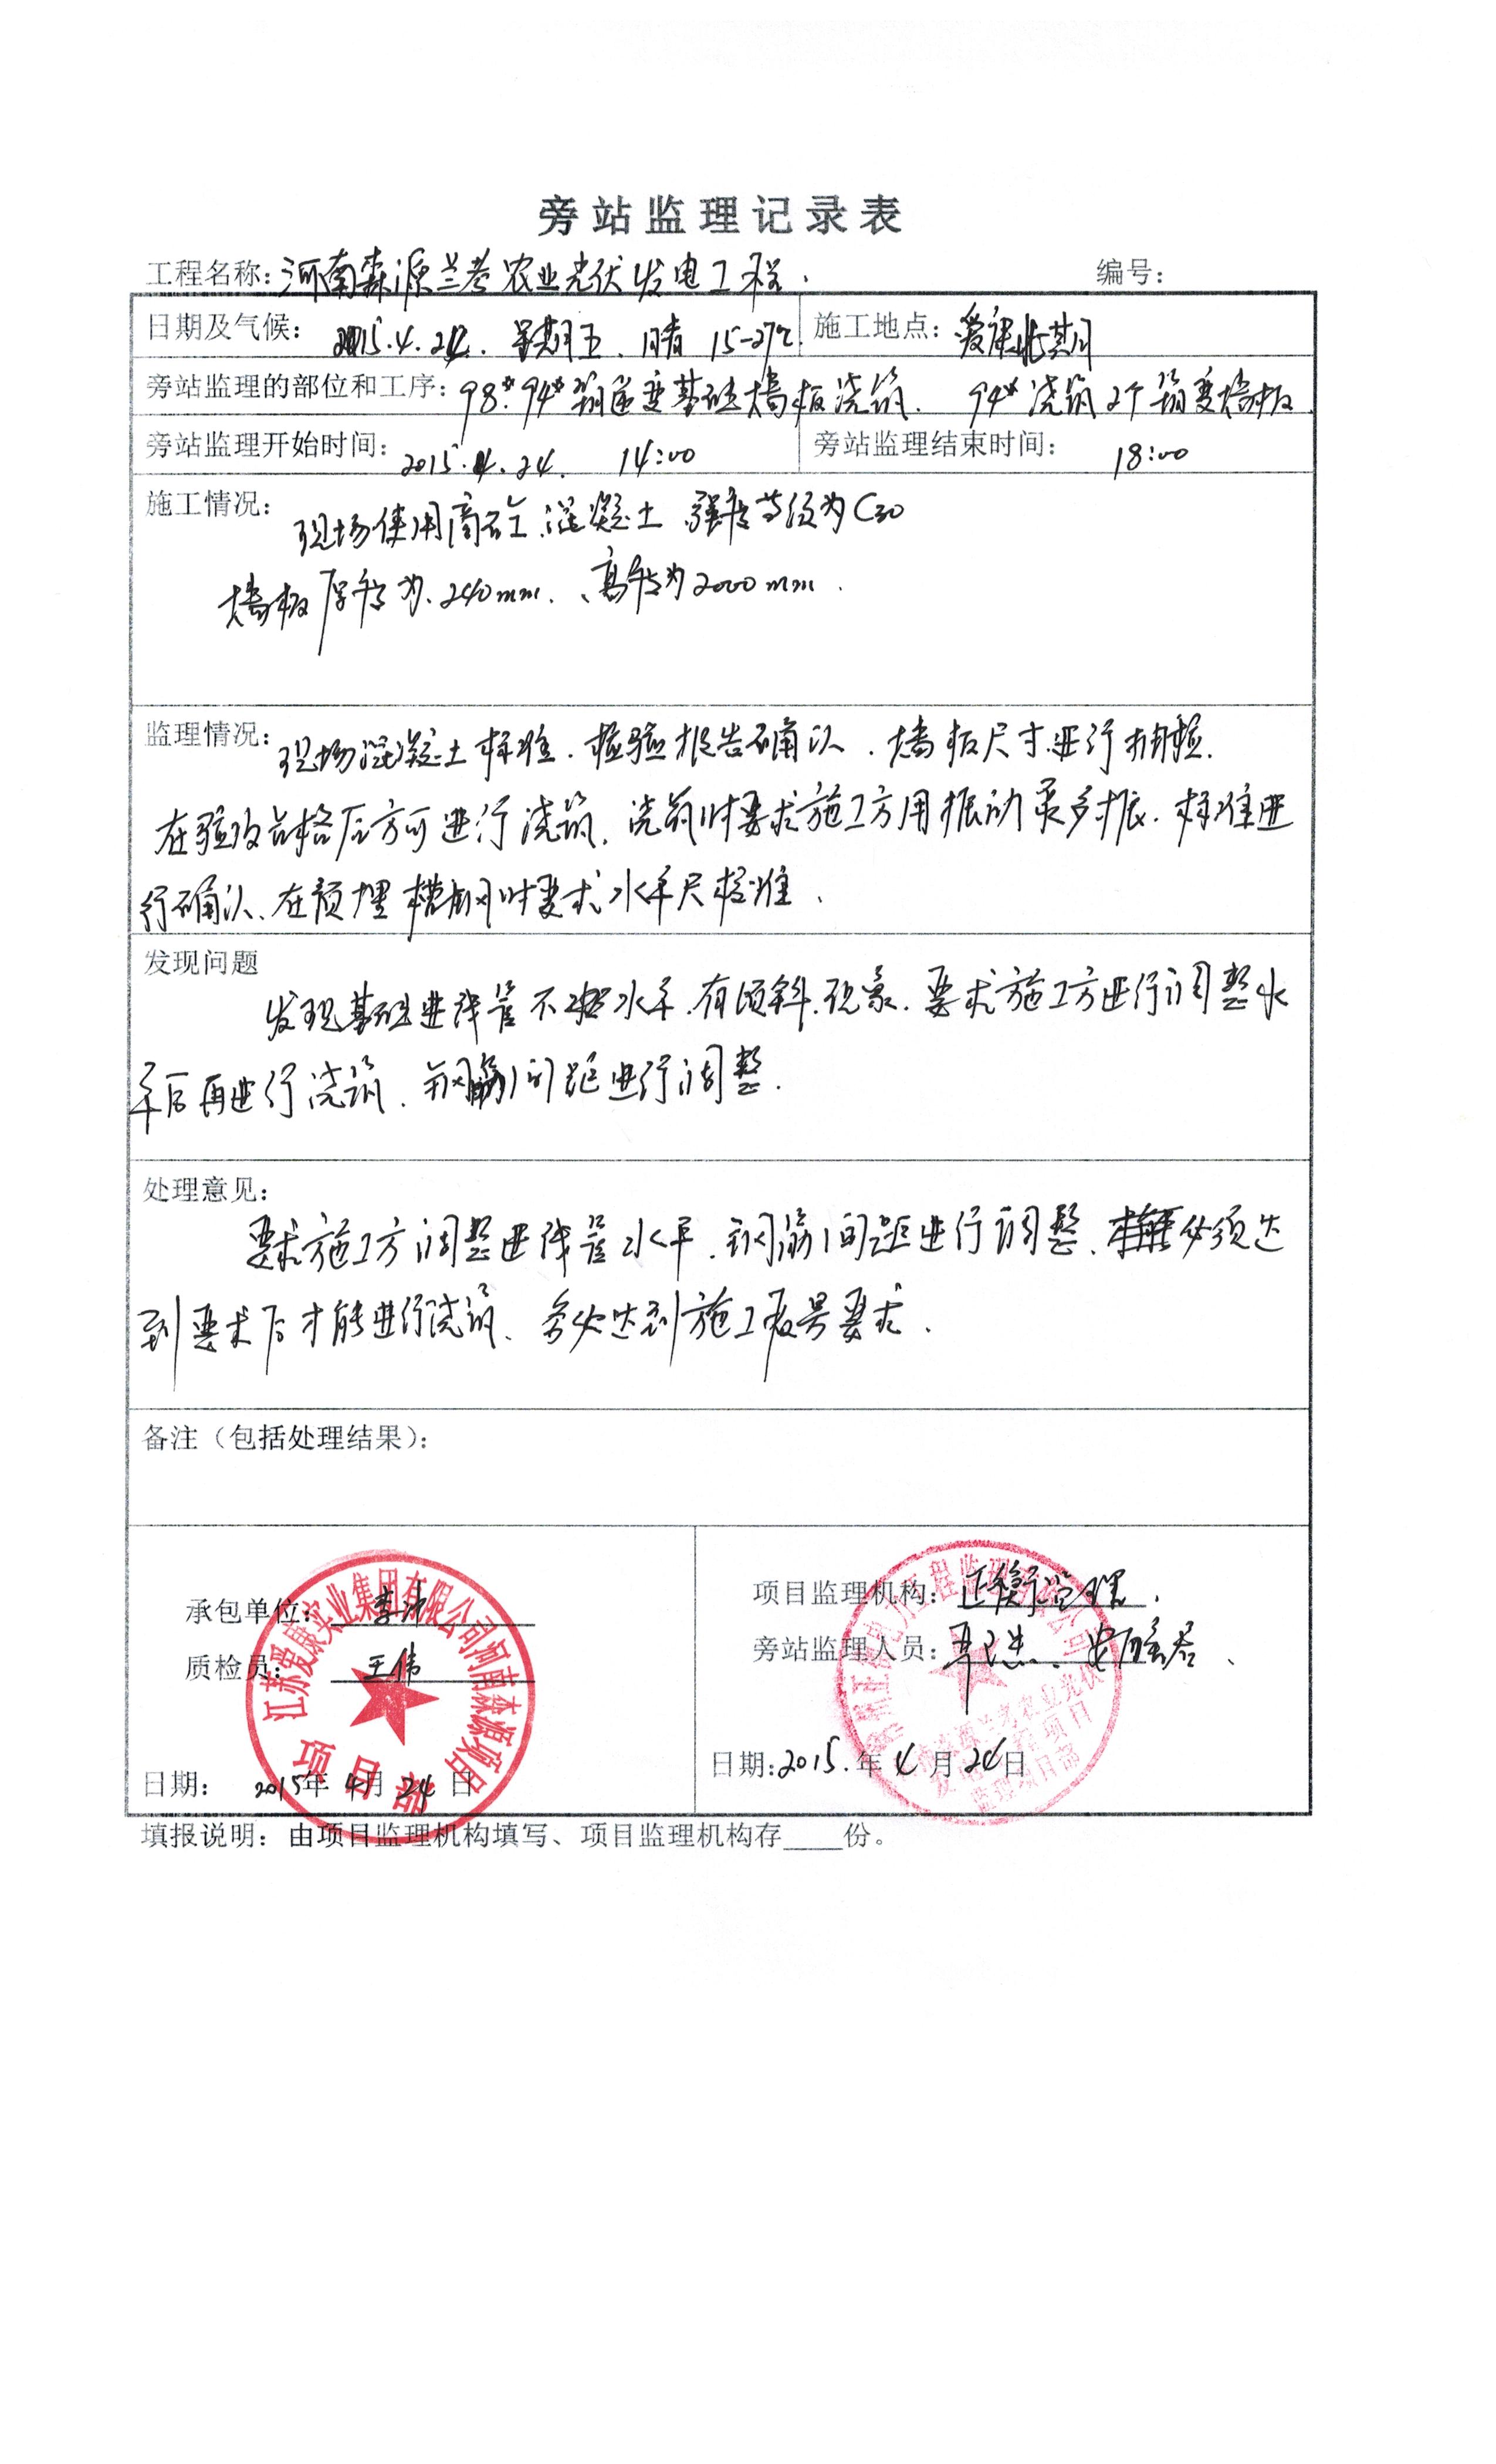 旁站监理记录表
工程名称：河南森源兰考农业光伏发电工程. 编号：
日期及气候： 2015.4.24. 星期五. 晴 15-27℃ 施工地点：爱康北区
旁站监理的部位和工序：98# 94# 箱逆变基础墙板浇筑. 94# 浇筑2个箱变墙板
旁站监理开始时间：2015.4.24. 14:00 旁站监理结束时间： 18:00
施工情况：现场使用商砼.混凝土 强度等级为C30
墙板厚度为.240mm.、高度为2000mm.
监理情况：现场混凝土标准.检验报告确认.墙板尺寸进行抽检.
在验收合格后方可进行浇筑.浇筑时要求施工方用振动多振.标准进
行确认、在预埋槽钢时要求水平尺校准.
发现问题
发现基础进线管不水平.有倾斜.现象.要求施工方进行调整水
平后再进行浇筑.钢筋间距进行调整.
处理意见：
要求施工方调整进线管水平.钢筋间距进行调整、必须达
到要求后才能进行浇筑、务必达到施工质量要求.
备注（包括处理结果）：
承包单位： 李
质检员： 王伟
日期： 2015年4月24日
江苏爱康实业集团有限公司河南森源项目
项目部
项目监理机构：正衡监理.
旁站监理人员：
日期：2015.年4月24日
电力工程监理
兰考农业光伏
监理项目部
填报说明：由项目监理机构填写、项目监理机构存____份。